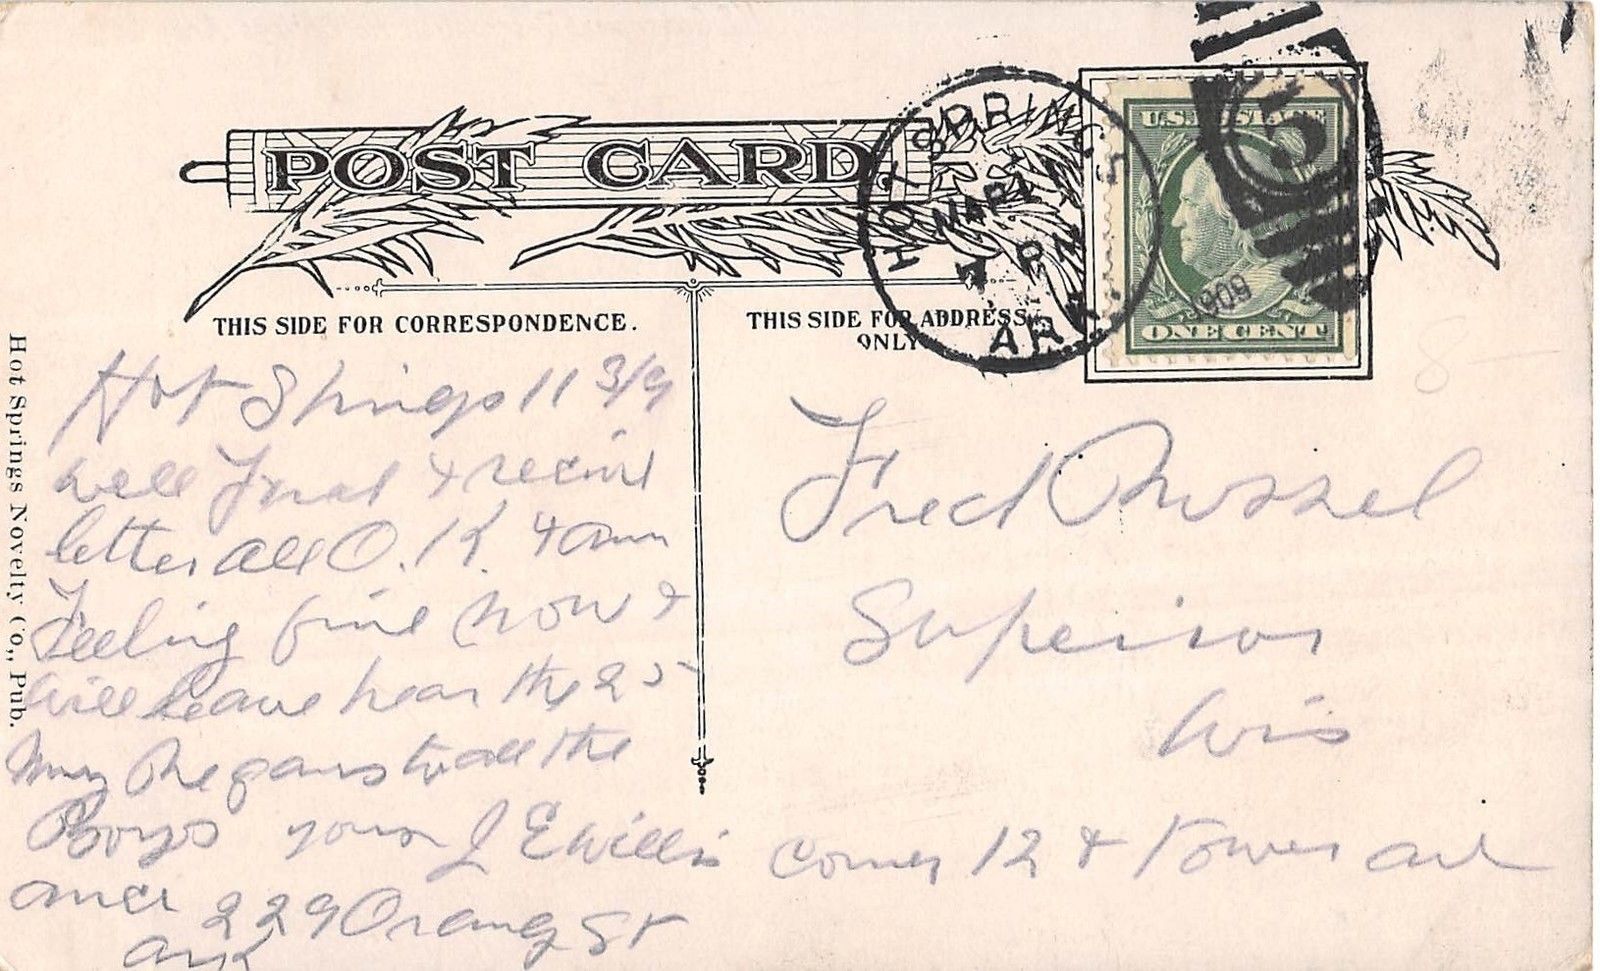 POST CARD
THIS SIDE FOR CORRESPONDENCE.
THIS SIDE FOR ADDRESS
ONLY
HOT SPRINGS
MAR
ARK
1909
5
U.S. POSTAGE
ONE CENT
Hot Springs Novelty Co., Pub.
Hot Springs 11 3/9
well Fred I recived
letter all O.K. + am
Feeling fine now +
will leave hear the 25
My Regars to all the
Boys yours J E Willis
229 Orang St
Ark
Fred Russel
Superior
Wis
Corner 12 + Tower ave